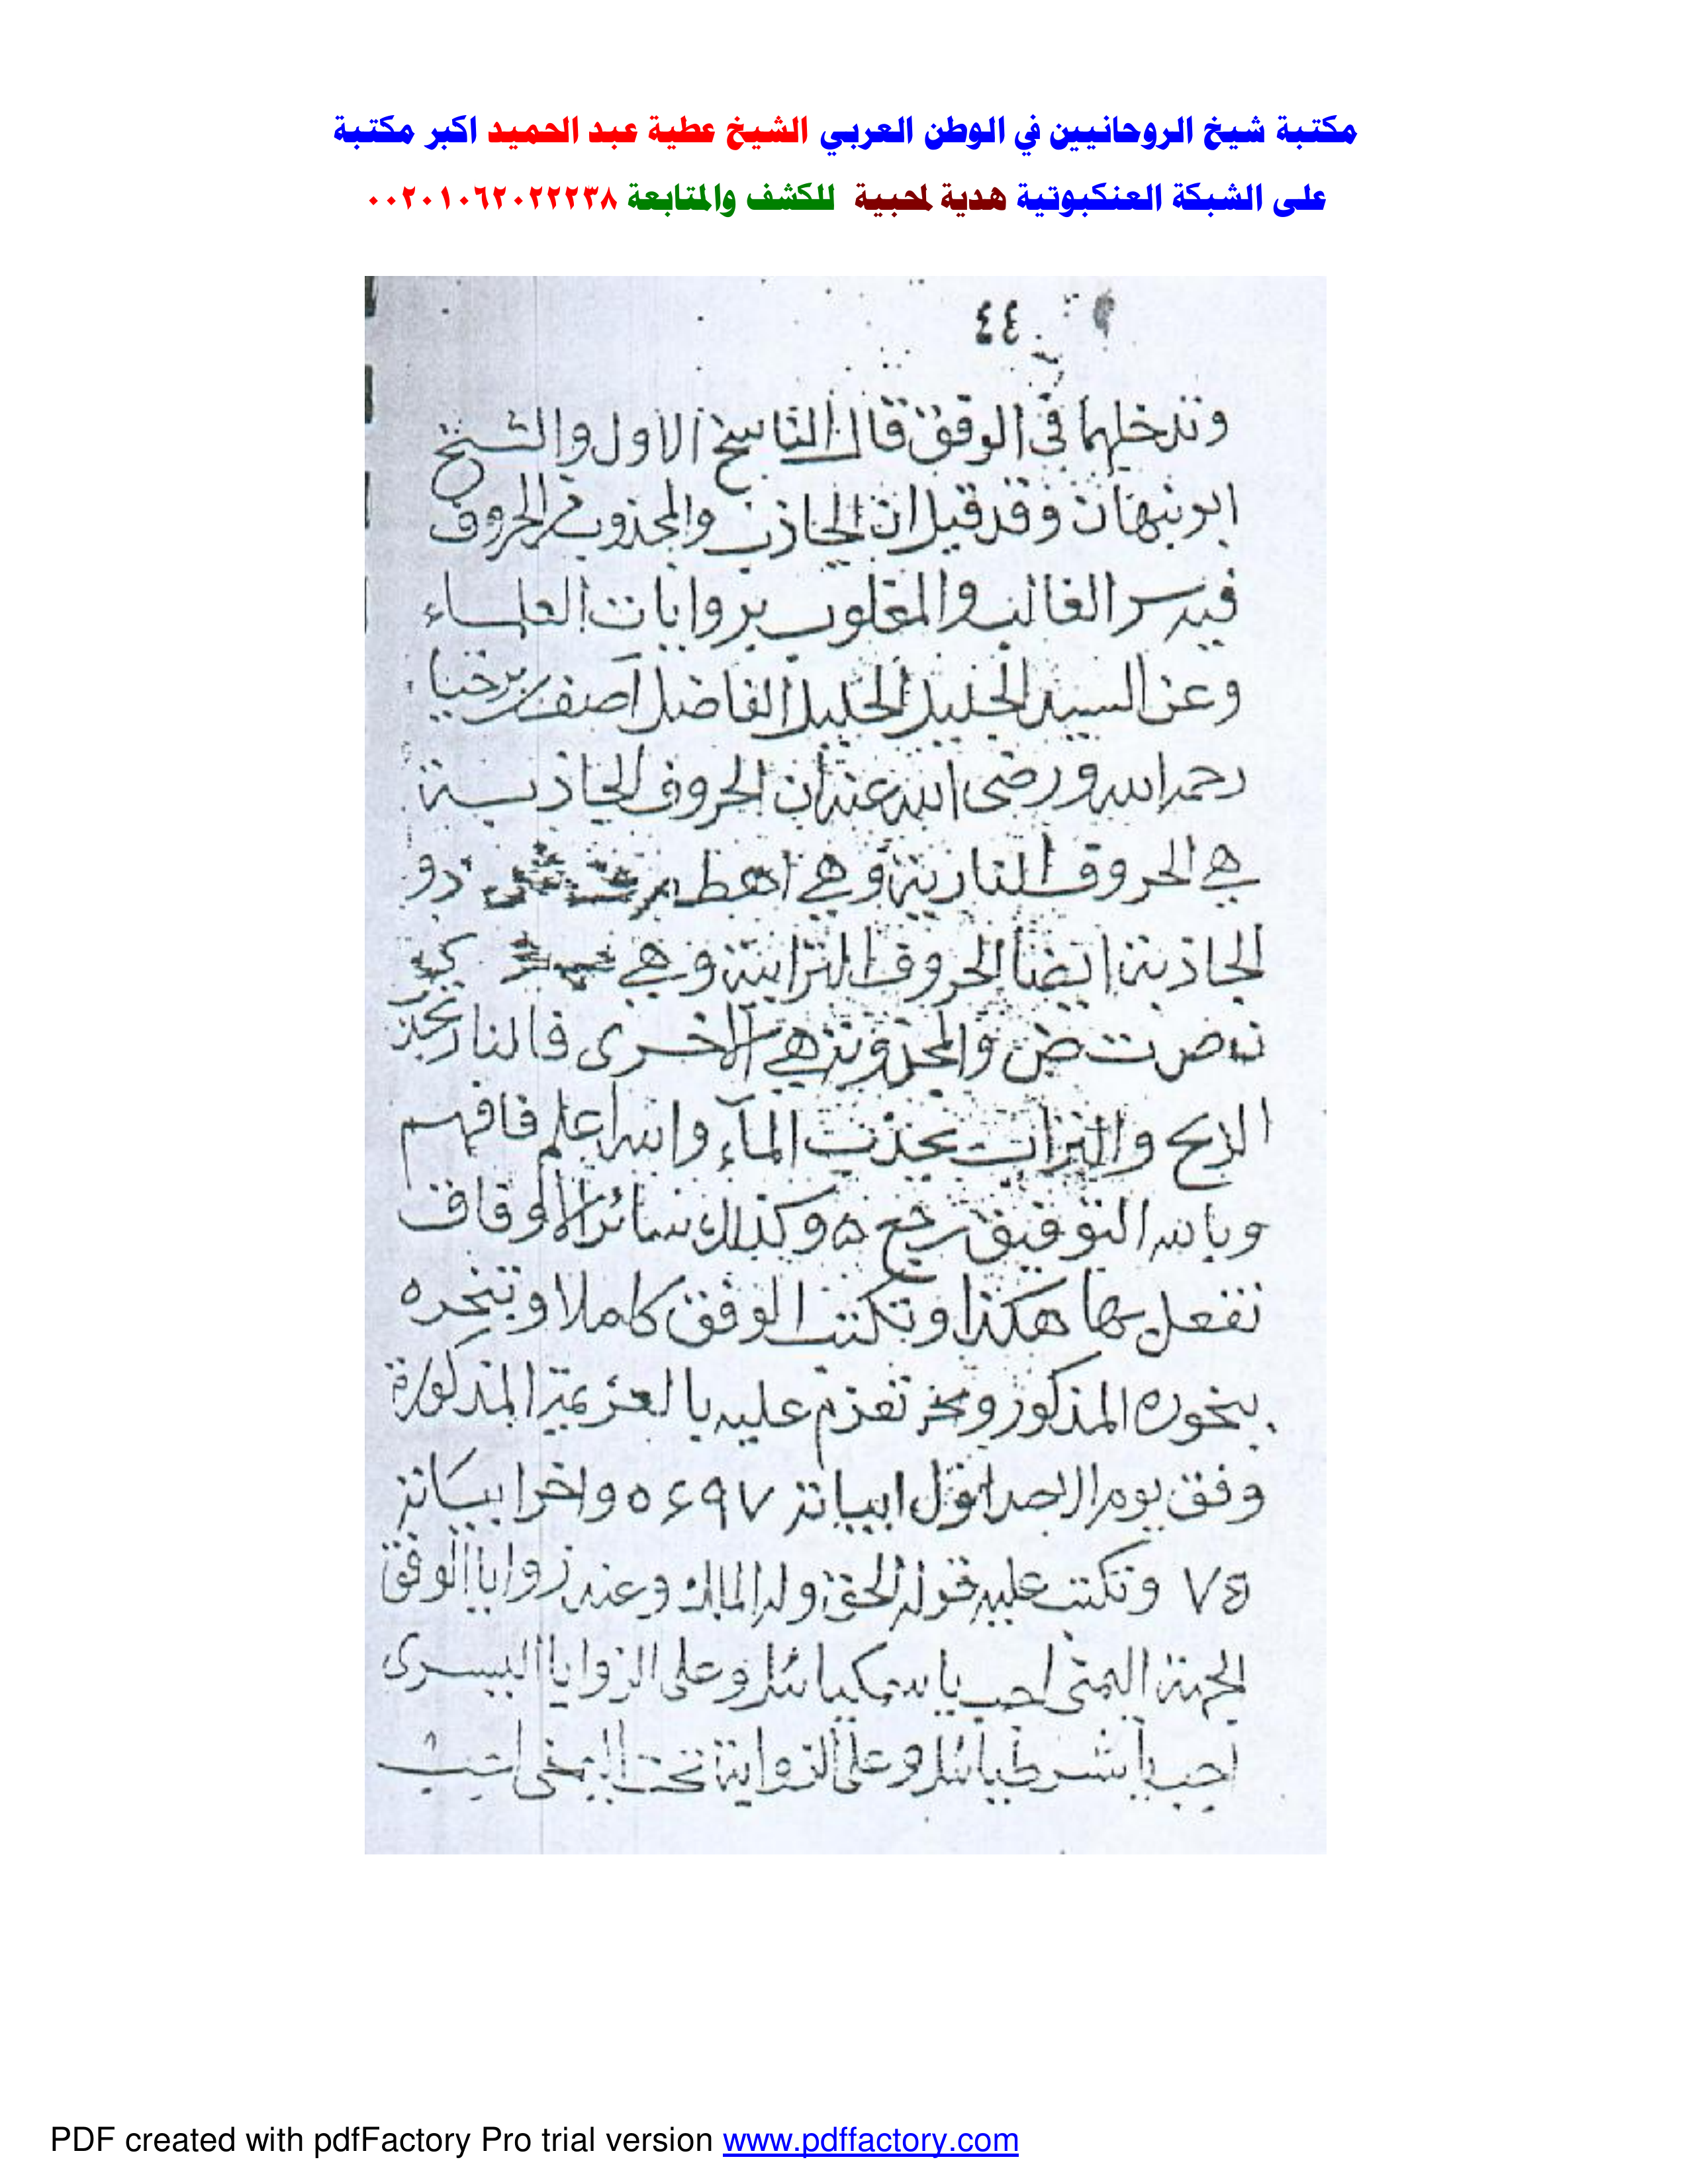 مكتبة شيخ الروحانيين في الوطن العربي الشيخ عطية عبد الحميد اكبر مكتبة
على الشبكة العنكبوتية هدية لمحبية للكشف والمتابعة ٠٠٢٠١٠٦٢٠٢٢٢٣٨
٤٤
وتدخلهما في الوفق قال الناسخ الاول والشيخ
ابو نبهان وقد قيل ان الجاذب والمجذوب في الحروف
فيه سر الغالب والمغلوب بروايات العلماء
وعن السيد الجليل الفاضل آصف بن برخيا
رحمه الله ورضى الله عنه ان الحروف الجاذبة
هي الحروف النارية وهي اهطم
الجاذبة ايضا الحروف الترابية وهي
ض والمجذوبة هي الاخرى فالنار تجذب
الريح والتراب يجذب الماء والله اعلم فافهم
وبالله التوفيق رجع ه وكذلك سائر الاوفاق
تفعل بها هكذا وتكتب الوفق كاملا وتبخره
ببخوره المذكور تعزم عليه بالعزيمة المذكورة
وفق يوم الاحد اول ابياته ٥٤٩٧ واخر ابياته
٧٥ وتكتب عليه قوله الحق وله الملك وعند زوايا الوفق
الجهة اليمنى اجب يا سمكيائيل وعلى الزوايا اليسرى
اجب يا شرطيائيل وعلى الزواية تحت اليمنى اجب